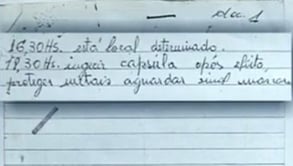 doc. 1
16,30Hs. está local determinado.
18,30Hs. ingerir cápsula após efeito,
proteger metais aguardar sinal máscara